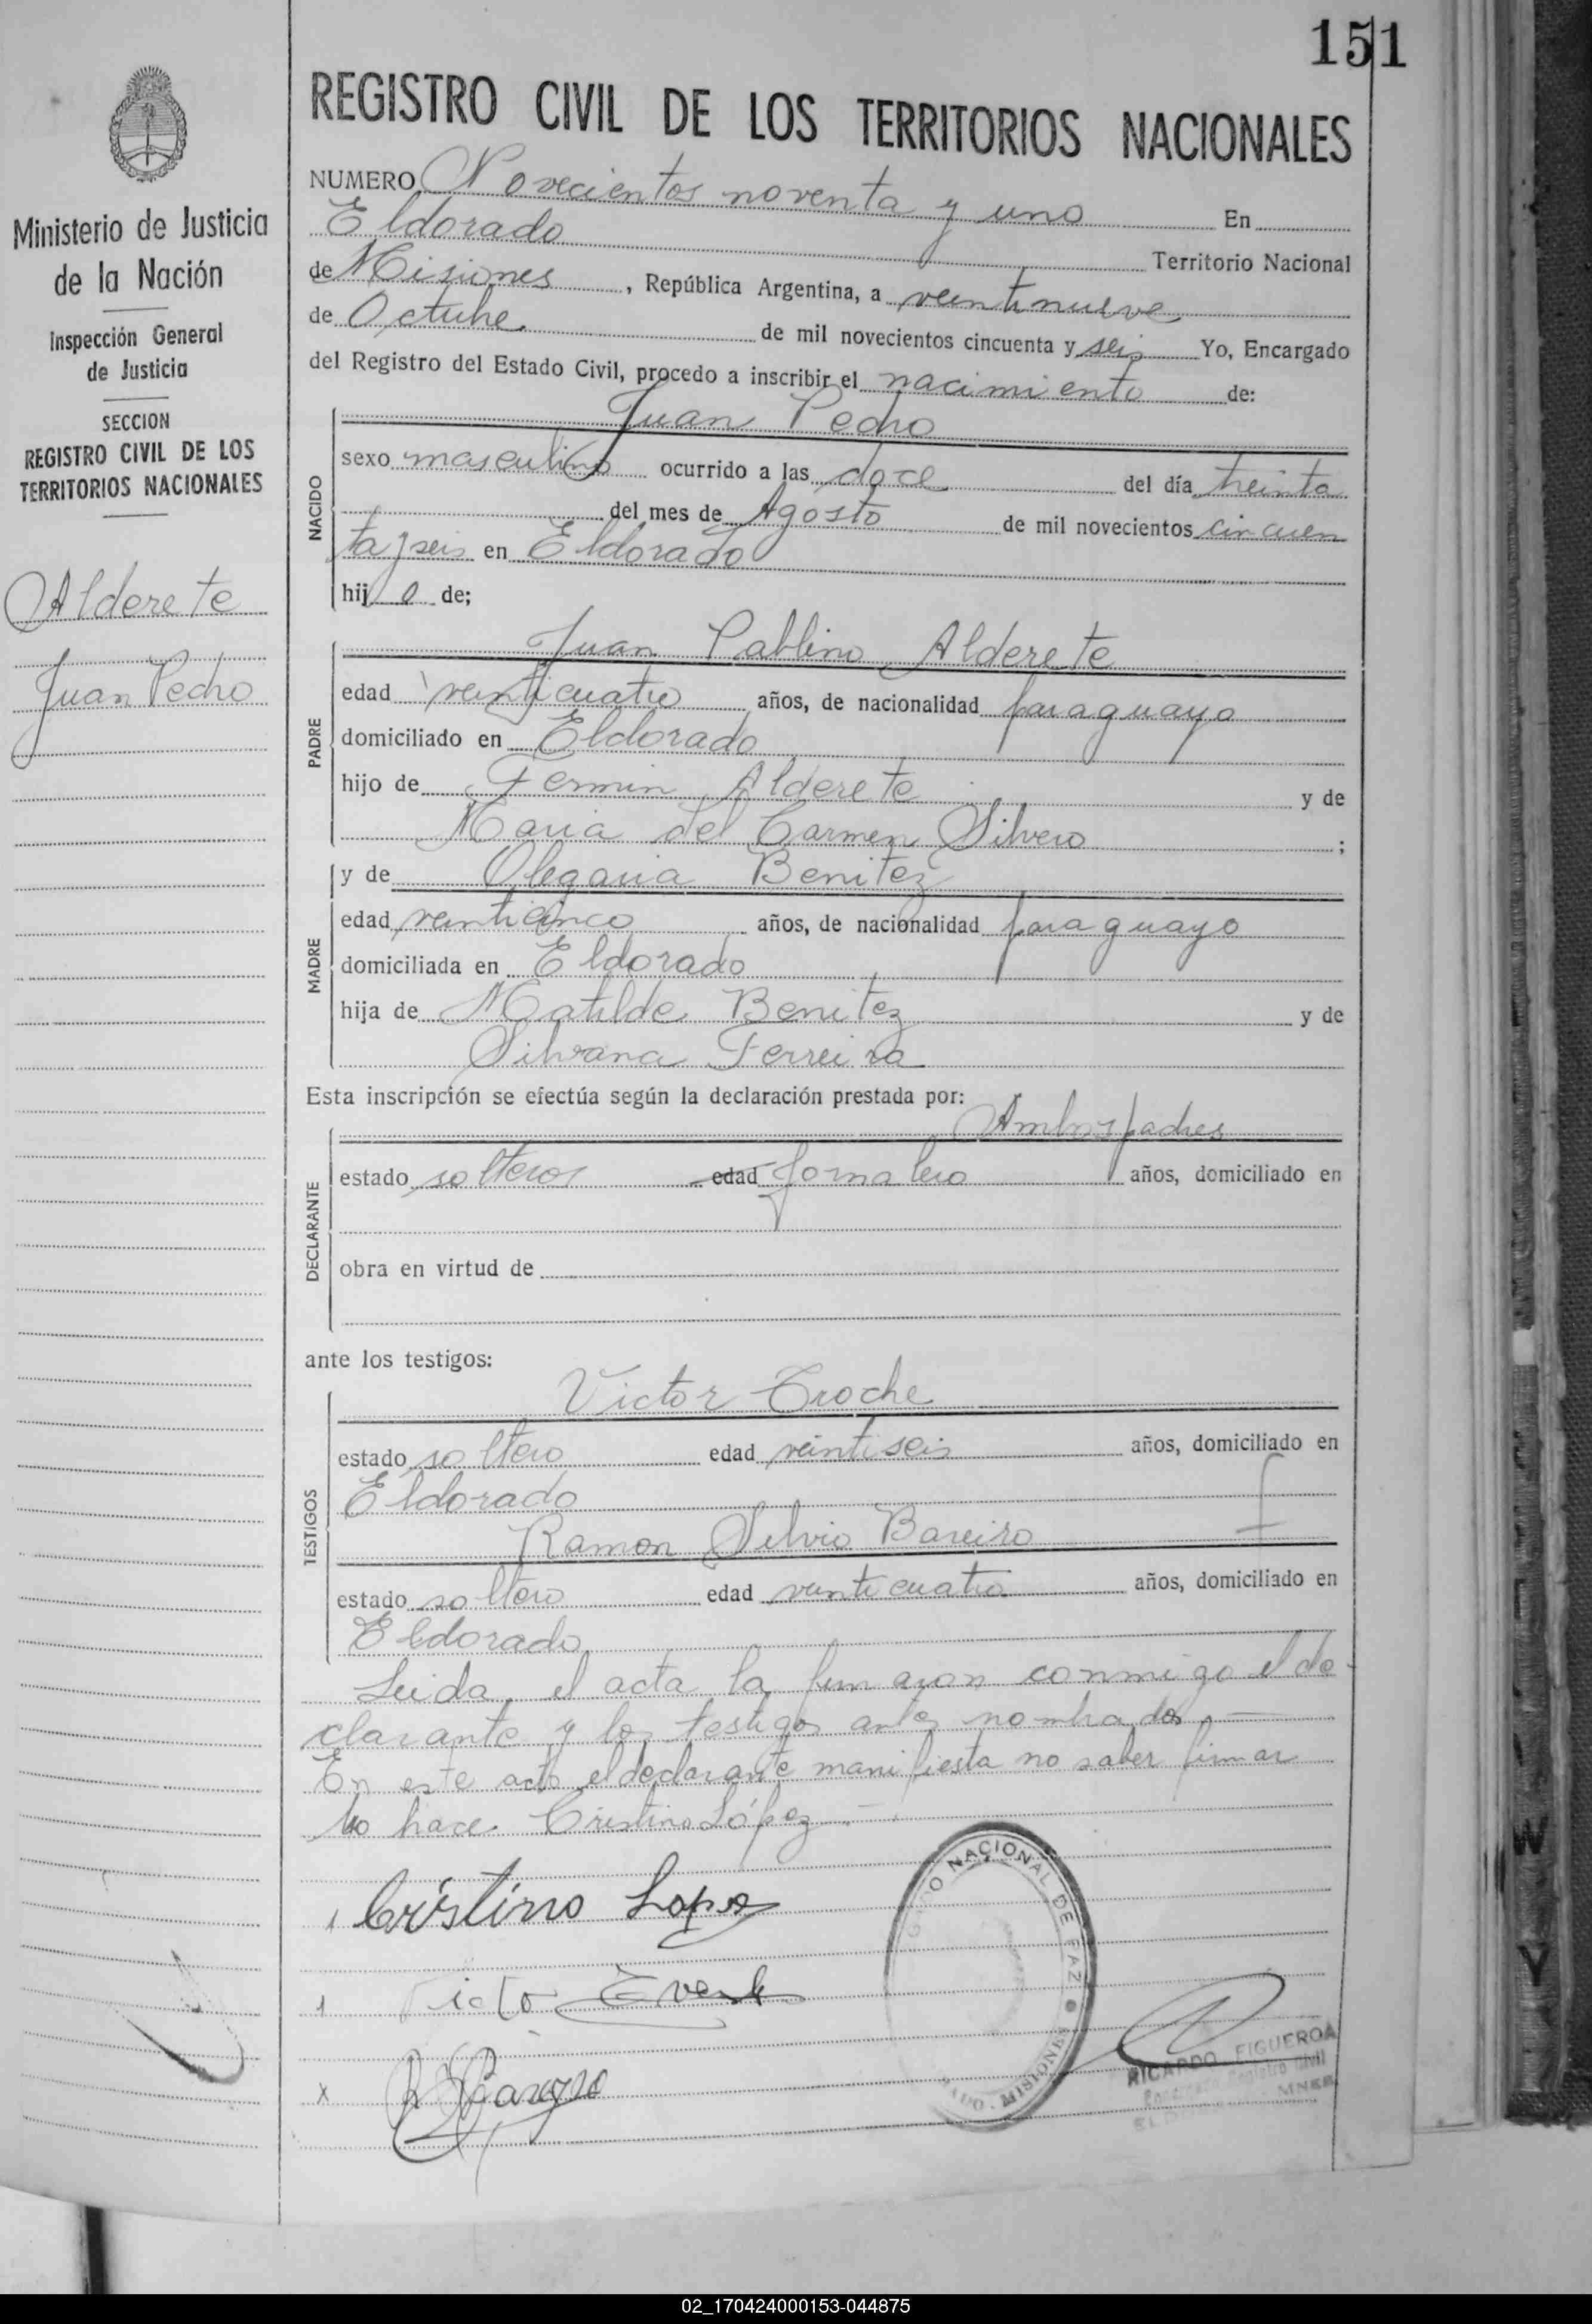 151
REGISTRO CIVIL DE LOS TERRITORIOS NACIONALES
Ministerio de Justicia
de la Nación
Inspección General
de Justicia
SECCION
REGISTRO CIVIL DE LOS
TERRITORIOS NACIONALES
Alderete
Juan Pedro
NUMERO Novecientos noventa y uno En
Eldorado Territorio Nacional
de Misiones, República Argentina, a veintinueve
de Octubre de mil novecientos cincuenta y seis Yo, Encargado
del Registro del Estado Civil, procedo a inscribir el nacimiento de:
NACIDO
Juan Pedro
sexo masculino ocurrido a las doce del día treinta
del mes de Agosto de mil novecientos cincuen
ta y seis en Eldorado
hijo de;
PADRE
Juan Pablino Alderete
edad veinticuatro años, de nacionalidad paraguayo
domiciliado en Eldorado
hijo de Fermin Alderete y de
Maria del Carmen Silvero ;
MADRE
y de Olegaria Benitez
edad veinticinco años, de nacionalidad paraguayo
domiciliada en Eldorado
hija de Matilde Benitez y de
Silvana Ferreira
Esta inscripción se efectúa según la declaración prestada por:
DECLARANTE
Ambos padres
estado solteros edad Jornalero años, domiciliado en
obra en virtud de
ante los testigos:
TESTIGOS
Victor Troche
estado soltero edad veintiseis años, domiciliado en
Eldorado
Ramon Silvio Bareiro
estado soltero edad veinticuatro años, domiciliado en
Eldorado
Leida el acta la firmaron conmigo el de
clarante y los testigos antes nombrados.
En este acto el declarante manifiesta no saber firmar
lo hace Cristino López
Cristino Lopez
NACIONAL DE PAZ
MISIONES
RICARDO FIGUEROA
Registro Civil
02_170424000153-044875